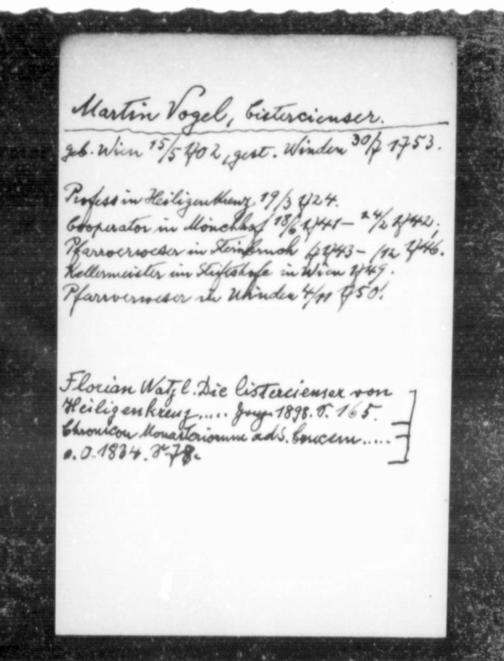 Martin Vogel, Cistercienser.
geb. Wien 15/5 1702, gest. Winden 30/7 1753.
Profess in Heiligenkreuz 19/3 1724.
Cooperator in Mönchhof 18/6 1741 – 24/2 1742,
Pfarrverweser in Steinbruch /7 1743 – /12 1746.
Kellermeister im Stiftshofe in Wien 1749.
Pfarrverweser in Winden 4/11 1750.
Florian Watzl. Die Cistercienser von
Heiligenkreuz, .... 1898. S. 165.
Chronicon Monasteriorum ad S. Crucem .....
o. O. 1834. S. 78.